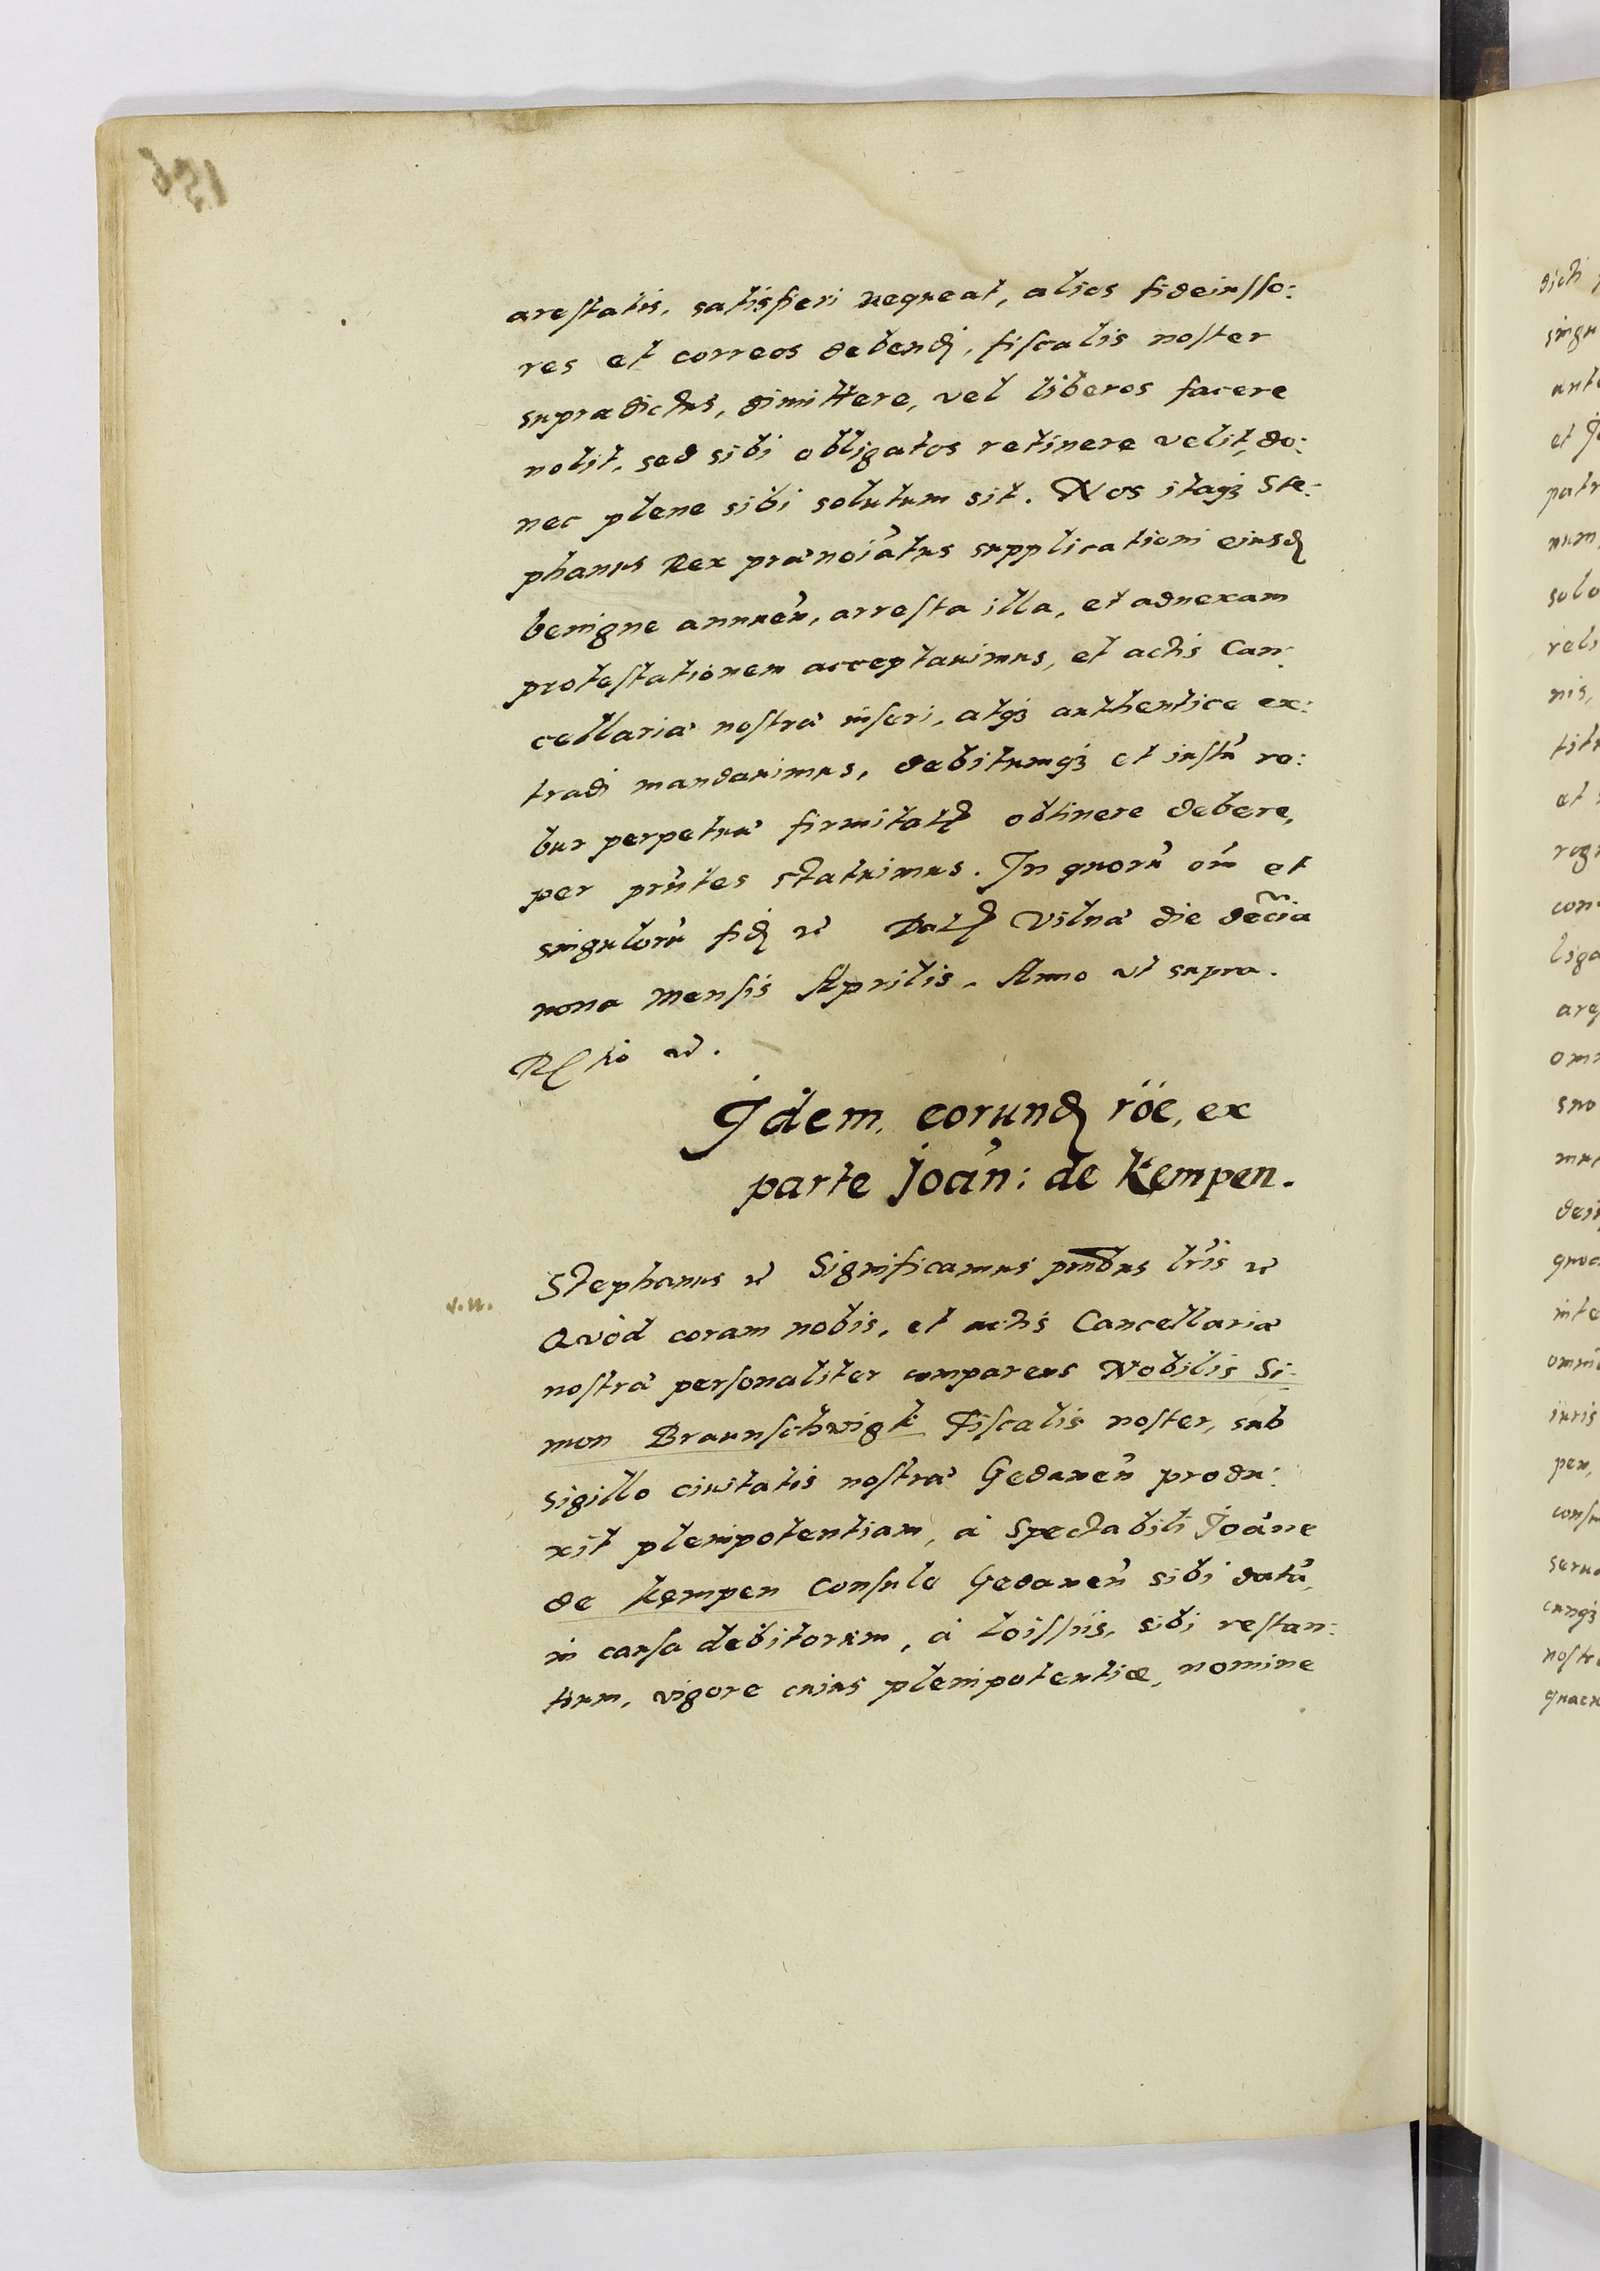 arestatis, satisfieri nequeat, alios fideiusso:
res et correos debendj, fiscalis noster
supradictus, dimittere, vel liberos facere
nolit, sed sibi obligatos retinere velit, do:
nec plene sibi solutum sit. Nos itaqȝ Ste:
phanus Rex prænoiatus supplicationi eiusd
benigne annueñ, arresta illa, et adnexam
protestationem acceptauimus, et actis Can:
cellariæ nostræ inseri, atqȝ authentice ex:
tradi mandauimus, debitumqȝ et iustũ ro:
bur perpetuæ firmitat obtinere debere,
per pñtes statuimus. In quorũ oiũ et
singulorũ fid ꝛc Dat Vilnæ die decia
nona mensis Aprilis. Anno vt supra.
ꝛc.
Idem, eorund röe, ex
parte Joan: de Kempen.
Stephanus ꝛc Significamus pñtibus lris ꝛc
Quòd coram nobis, et actis Cancellariæ
nostræ personaliter comparens Nobilis Si:
mon Braunschwigk Fiscalis noster, sub
sigillo ciuitatis nostræ Gedaneñ produ:
xit plenipotentiam, à Spectabili Joañe
de Kempen Consule Gedaneñ sibi datã,
in causa debitorum, à Loissiis, sibi restan:
tium, vigore cuius plenipotentiæ, nomine
dicti
singu
et
patr
num
solo
reli
nis,
et
con
liga
omn
suo
mu
quod
inte
iuris
pen,
nostr